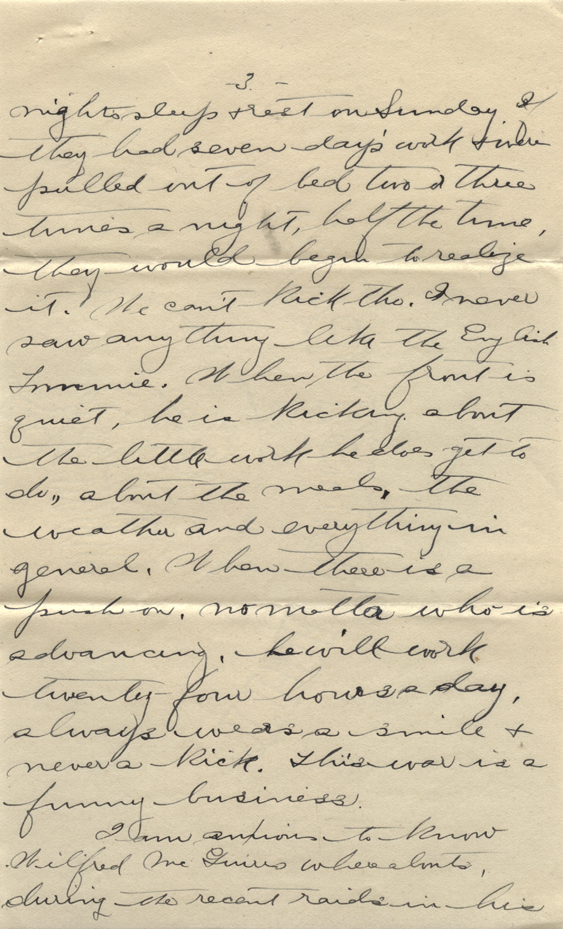 -3-
nights sleep & rest on Sunday. If
they had seven day's work & were
pulled out of bed two or three
times a night, half the time,
they would begin to realize
it. We can't kick tho. I never
saw anything like the English
Tommie. When the front is
quiet, he is kicking about
the little work he does get to
do, about the meals, the
weather and everything in
general. When there is a
push on, no matter who is
advancing, he will work
twenty four hours a day,
always wears a smile &
never a kick. This war is a
funny business.
I am anxious to know
Wilfred Mc Guires whereabouts,
during the recent raids in his